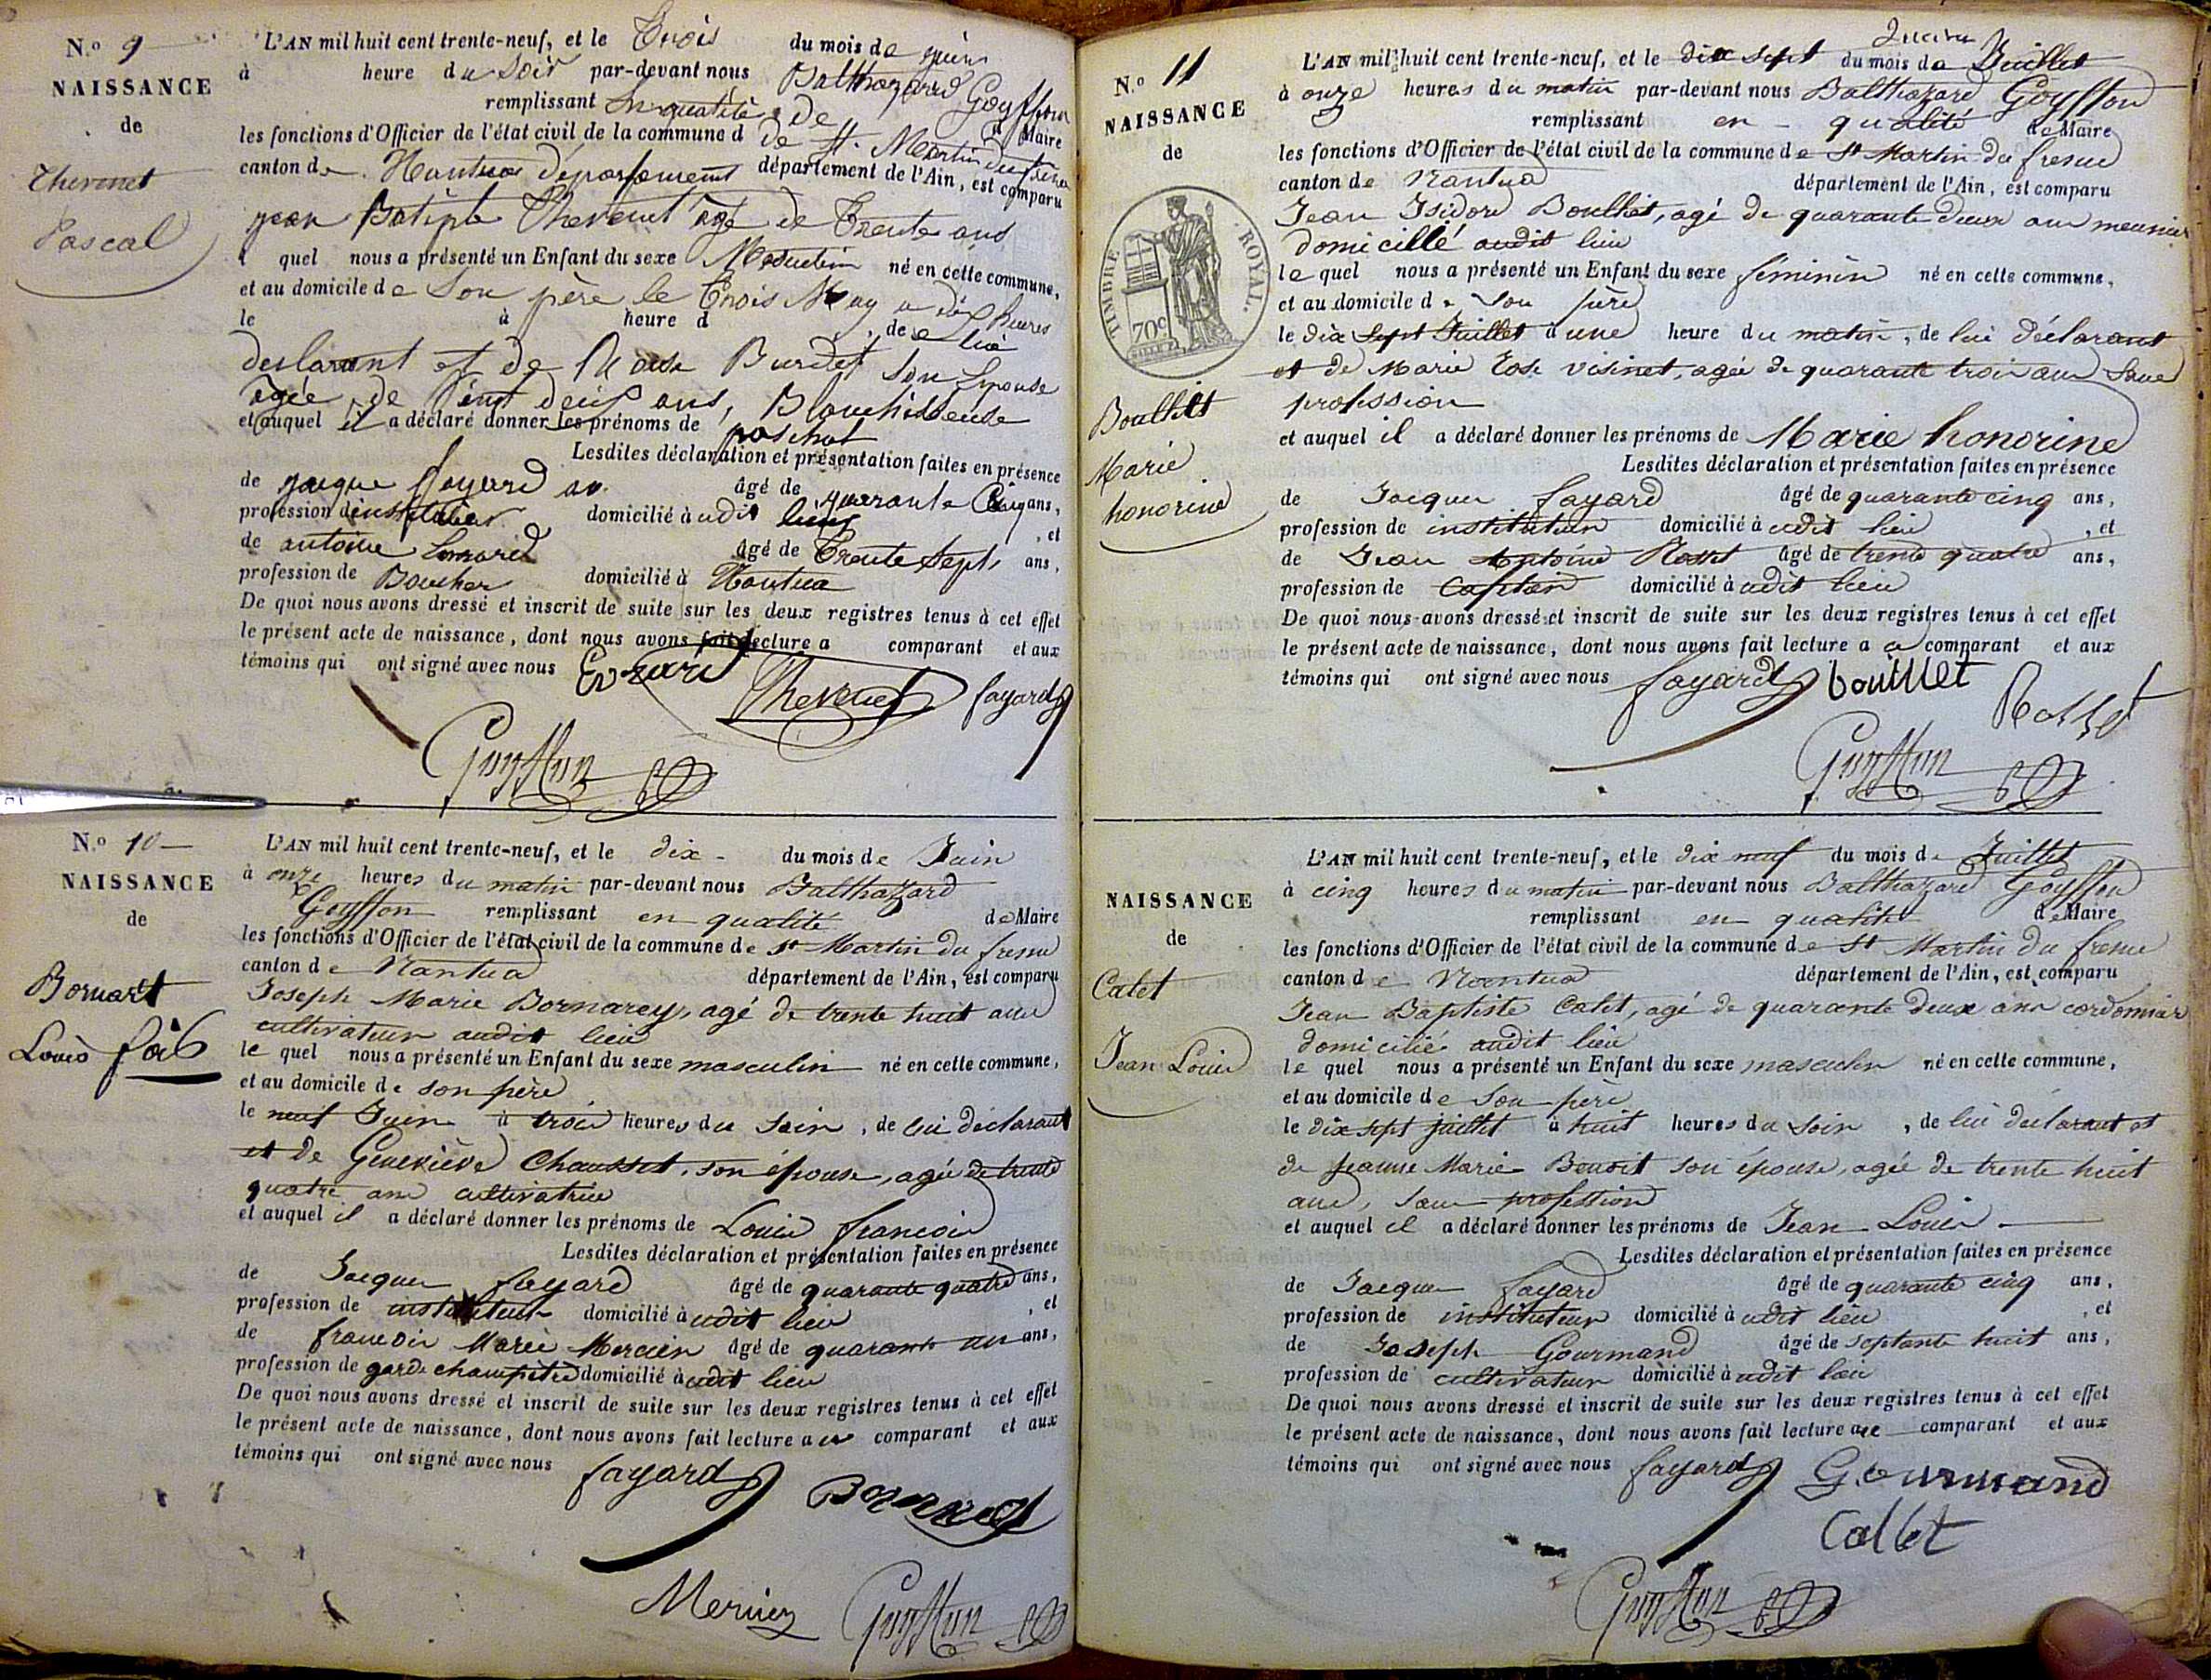 N.° 9
NAISSANCE
de
Thevenet
Pascal
L'AN mil huit cent trente-neuf, et le Trois du mois de juin
à heure du Soir par-devant nous Balthazard Goyffon
remplissant En qualité de Maire
les fonctions d'Officier de l'état civil de la commune d de St. Martin du frene
canton de Nantua département département de l'Ain, est comparu
jean Batiste Thevenet age de Trente ans
l quel nous a présenté un Enfant du sexe Masculin né en cette commune,
et au domicile de Son père le Trois May a dix heures
le à heure d , de lui
declarant et de Burdet son Epouse
agée de vint deux ans, Blanchisseuse
et auquel il a déclaré donner les prénoms de paschal
Lesdites déclaration et présentation faites en présence
de jacque fayard âgé de quarante Cinq ans,
profession d'instituteur domicilié à udit lieu , et
de antoine âgé de Trente Sept ans,
profession de Boucher domicilié à Nantua
De quoi nous avons dressé et inscrit de suite sur les deux registres tenus à cet effet
le présent acte de naissance, dont nous avons fait lecture a comparant et aux
témoins qui ont signé avec nous
Thevenet fayard
Goyffon
N.° 10
NAISSANCE
de
Bornart
Louis fois
L'AN mil huit cent trente-neuf, et le dix du mois de Juin
à onze heures du matin par-devant nous Balthazard
Goyffon remplissant en qualité de Maire
les fonctions d'Officier de l'état civil de la commune de St Martin du fresne
canton de Nantua département de l'Ain, est comparu
Joseph Marie Bornarey, agé de trente huit ans
cultivateur audit lieu
le quel nous a présenté un Enfant du sexe masculin né en cette commune,
et au domicile de son père
le neuf Juin à trois heures du soir, de lui déclarant
et de Geneviève Chausset, son épouse, agée de trente
quatre ans cultivatrice
et auquel il a déclaré donner les prénoms de Louis francois
Lesdites déclaration et présentation faites en présence
de Jacques fayard âgé de quarante quatre ans,
profession de instituteur domicilié à udit lieu , et
de francois Marie Mercier âgé de quarante un ans,
profession de garde champêtre domicilié à udit lieu
De quoi nous avons dressé et inscrit de suite sur les deux registres tenus à cet effet
le présent acte de naissance, dont nous avons fait lecture a comparant et aux
témoins qui ont signé avec nous
fayard
Goyffon
N.° 11
NAISSANCE
de
TIMBRE ROYAL.
70c
Boulliet
Marie
honorine
L'AN mil huit cent trente-neuf, et le dix sept du mois de Juillet
à onze heures du matin par-devant nous Balthazard Goyffon
remplissant en qualité de Maire
les fonctions d'Officier de l'état civil de la commune de St Martin du fresne
canton de Nantua département de l'Ain, est comparu
Jean Isidore Boulliet, agé de quarante deux ans meunier
domicillé audit lieu
le quel nous a présenté un Enfant du sexe féminin né en cette commune,
et au domicile d e son père
le dix sept Juillet à une heure du matin, de lui déclarant
et de Marie Rose visinet, agée de quarante trois ans sans
profession
et auquel il a déclaré donner les prénoms de Marie honorine
Lesdites déclaration et présentation faites en présence
de Jacques fayard âgé de quarante cinq ans,
profession de instituteur domicilié à udit lieu , et
de Jean Antoine Rosset âgé de trente quatre ans,
profession de domicilié à udit lieu
De quoi nous avons dressé et inscrit de suite sur les deux registres tenus à cet effet
le présent acte de naissance, dont nous avons fait lecture a comparant et aux
témoins qui ont signé avec nous fayard bouillet
Rosset
Goyffon
NAISSANCE
de
Catet
Jean Louis
L'AN mil huit cent trente-neuf, et le dix neuf du mois de Juillet
à cinq heures du matin par-devant nous Balthazard Goyffon
remplissant en qualité de Maire
les fonctions d'Officier de l'état civil de la commune de St Martin du fresne
canton de Nantua département de l'Ain, est comparu
Jean Baptiste Catet, agé de quarante deux ans cordonnier
domicilié audit lieu
le quel nous a présenté un Enfant du sexe masculin né en cette commune,
et au domicile de son père
le dix sept juillet à huit heures du soir , de lui déclarant et
de jeanne Marie Benoit son épouse, agée de trente huit
ans, sans profession
et auquel il a déclaré donner les prénoms de Jean Louis
Lesdites déclaration et présentation faites en présence
de Jacques fayard âgé de quarante cinq ans,
profession de instituteur domicilié à udit lieu , et
de Joseph Gourmand âgé de septante huit ans,
profession de cultivateur domicilié à udit lieu
De quoi nous avons dressé et inscrit de suite sur les deux registres tenus à cet effet
le présent acte de naissance, dont nous avons fait lecture a comparant et aux
témoins qui ont signé avec nous fayard Gourmand
Callet
Goyffon